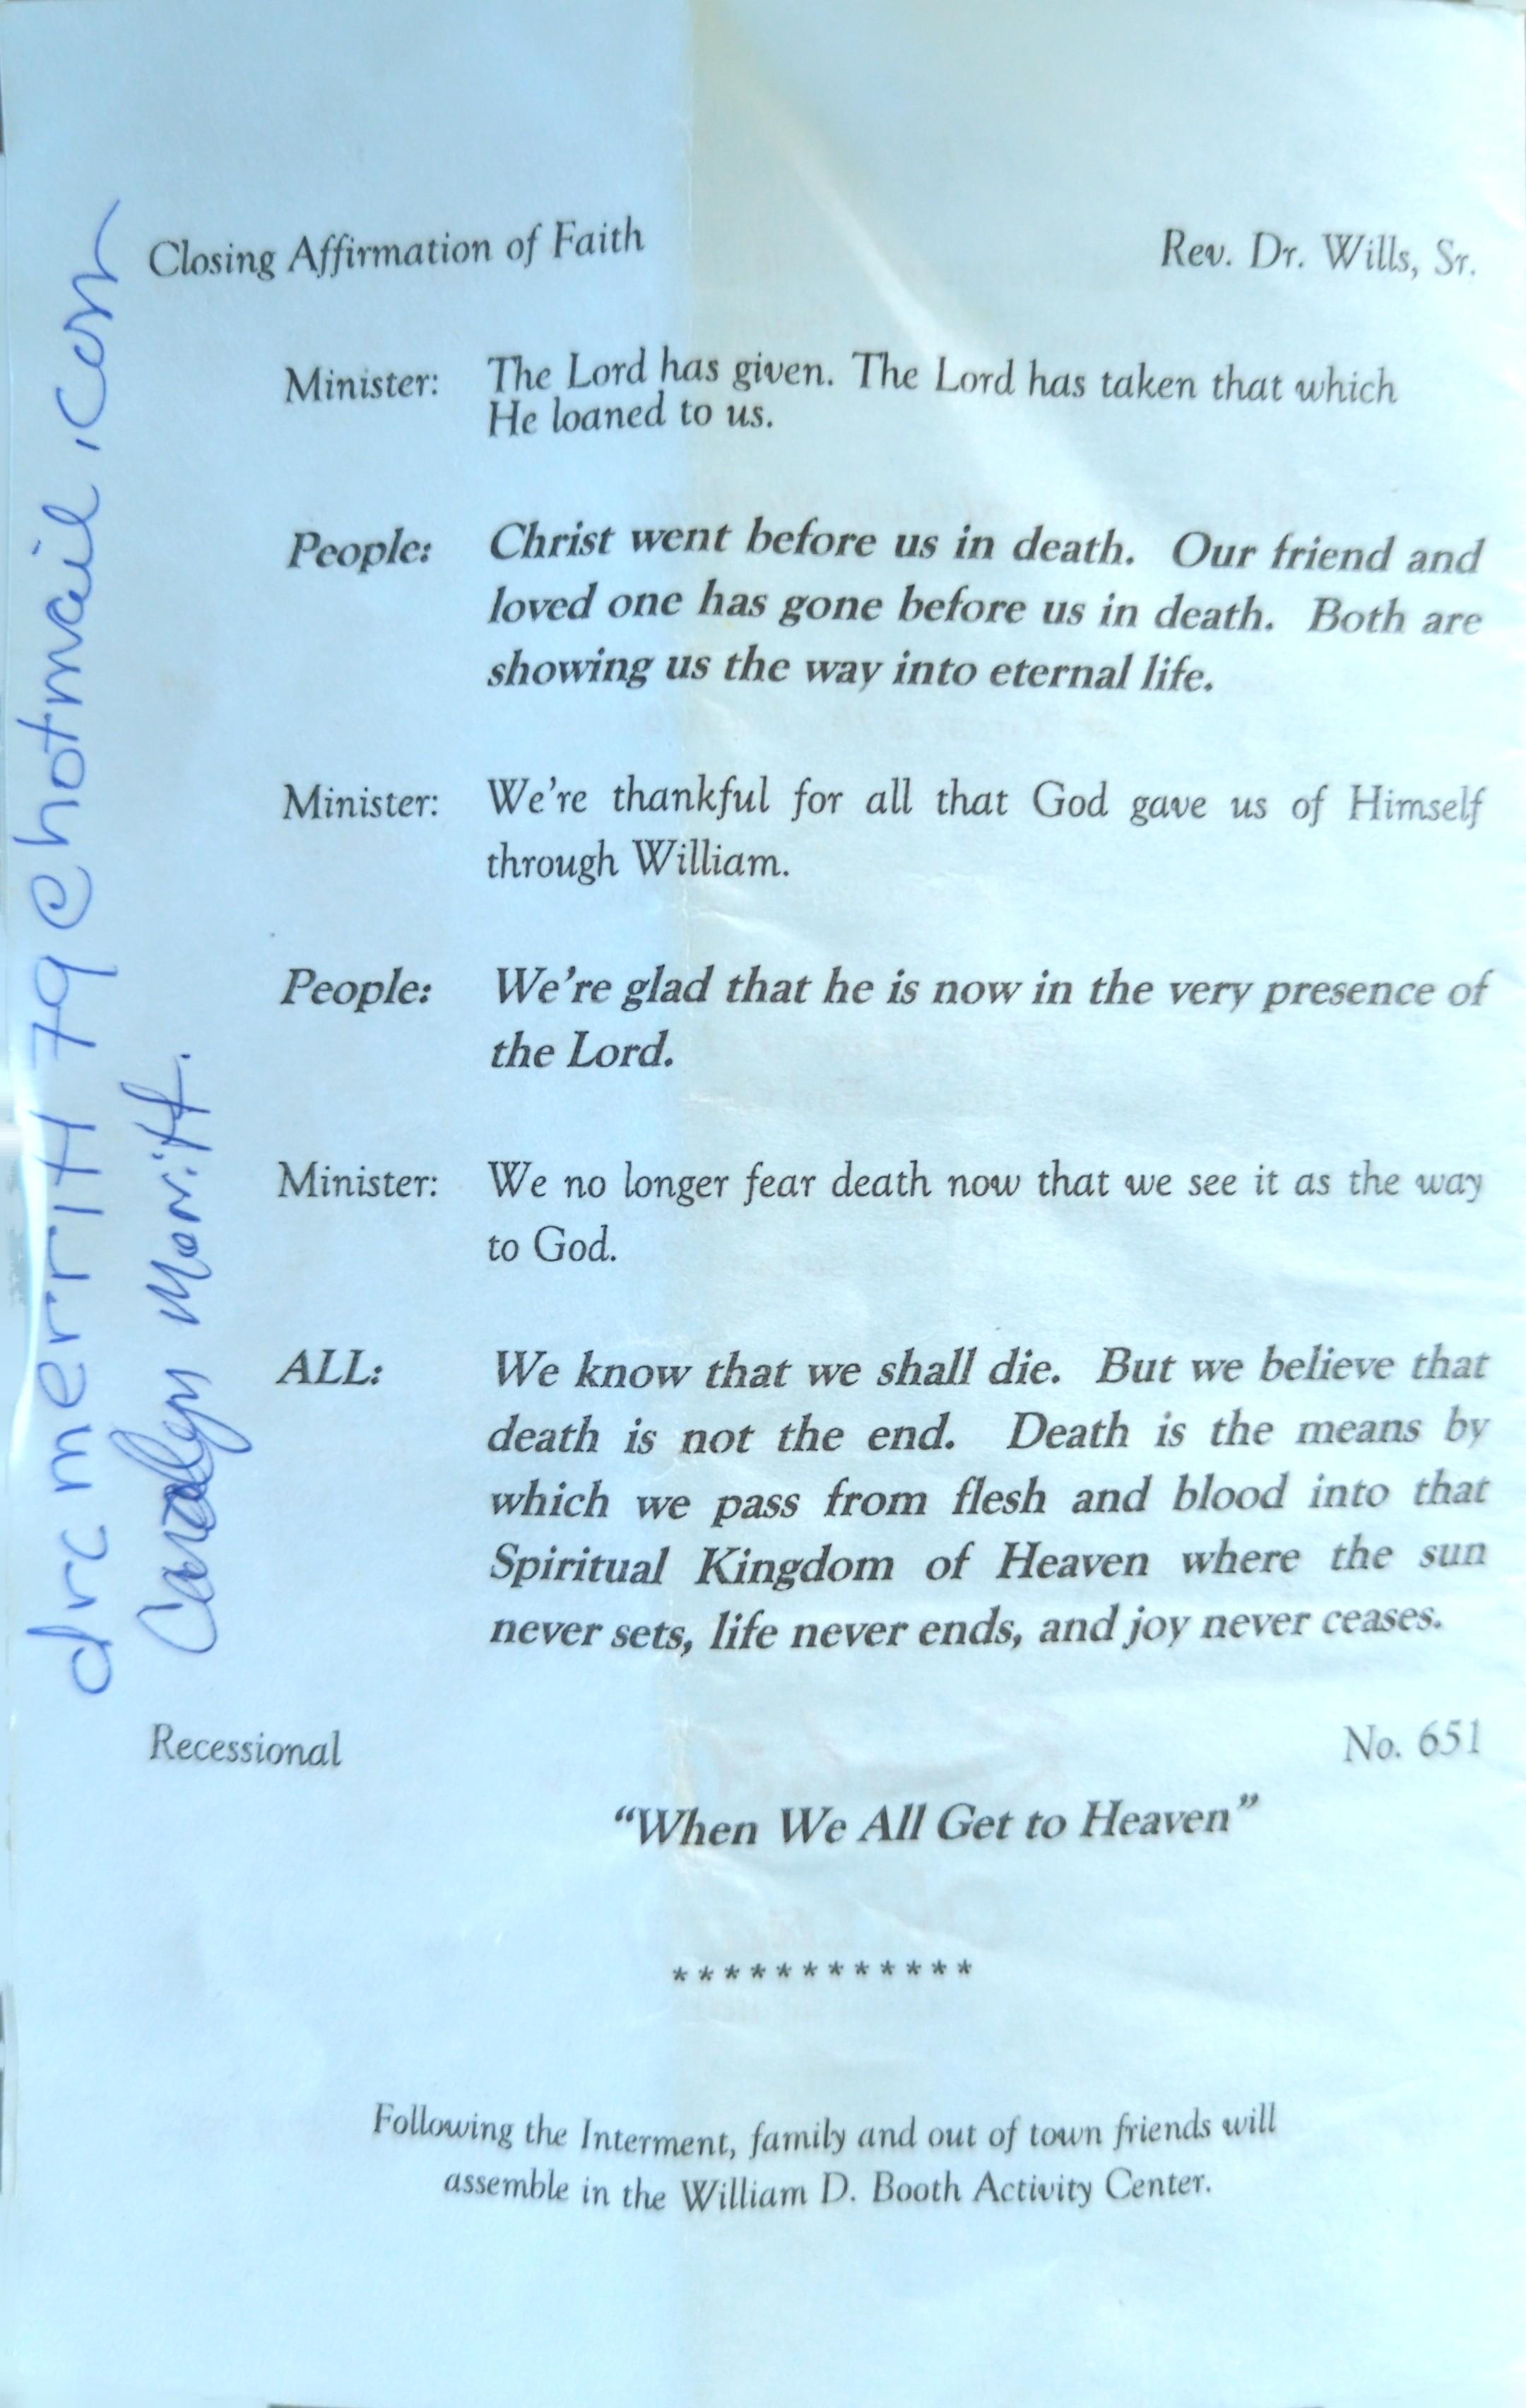 Closing Affirmation of Faith Rev. Dr. Wills, Sr.
Minister: The Lord has given. The Lord has taken that which
He loaned to us.
People: Christ went before us in death. Our friend and
loved one has gone before us in death. Both are
showing us the way into eternal life.
Minister: We're thankful for all that God gave us of Himself
through William.
People: We're glad that he is now in the very presence of
the Lord.
Minister: We no longer fear death now that we see it as the way
to God.
ALL: We know that we shall die. But we believe that
death is not the end. Death is the means by
which we pass from flesh and blood into that
Spiritual Kingdom of Heaven where the sun
never sets, life never ends, and joy never ceases.
Recessional No. 651
“When We All Get to Heaven”
************
Following the Interment, family and out of town friends will
assemble in the William D. Booth Activity Center.
drcmerritt79@hotmail.com
Merritt.